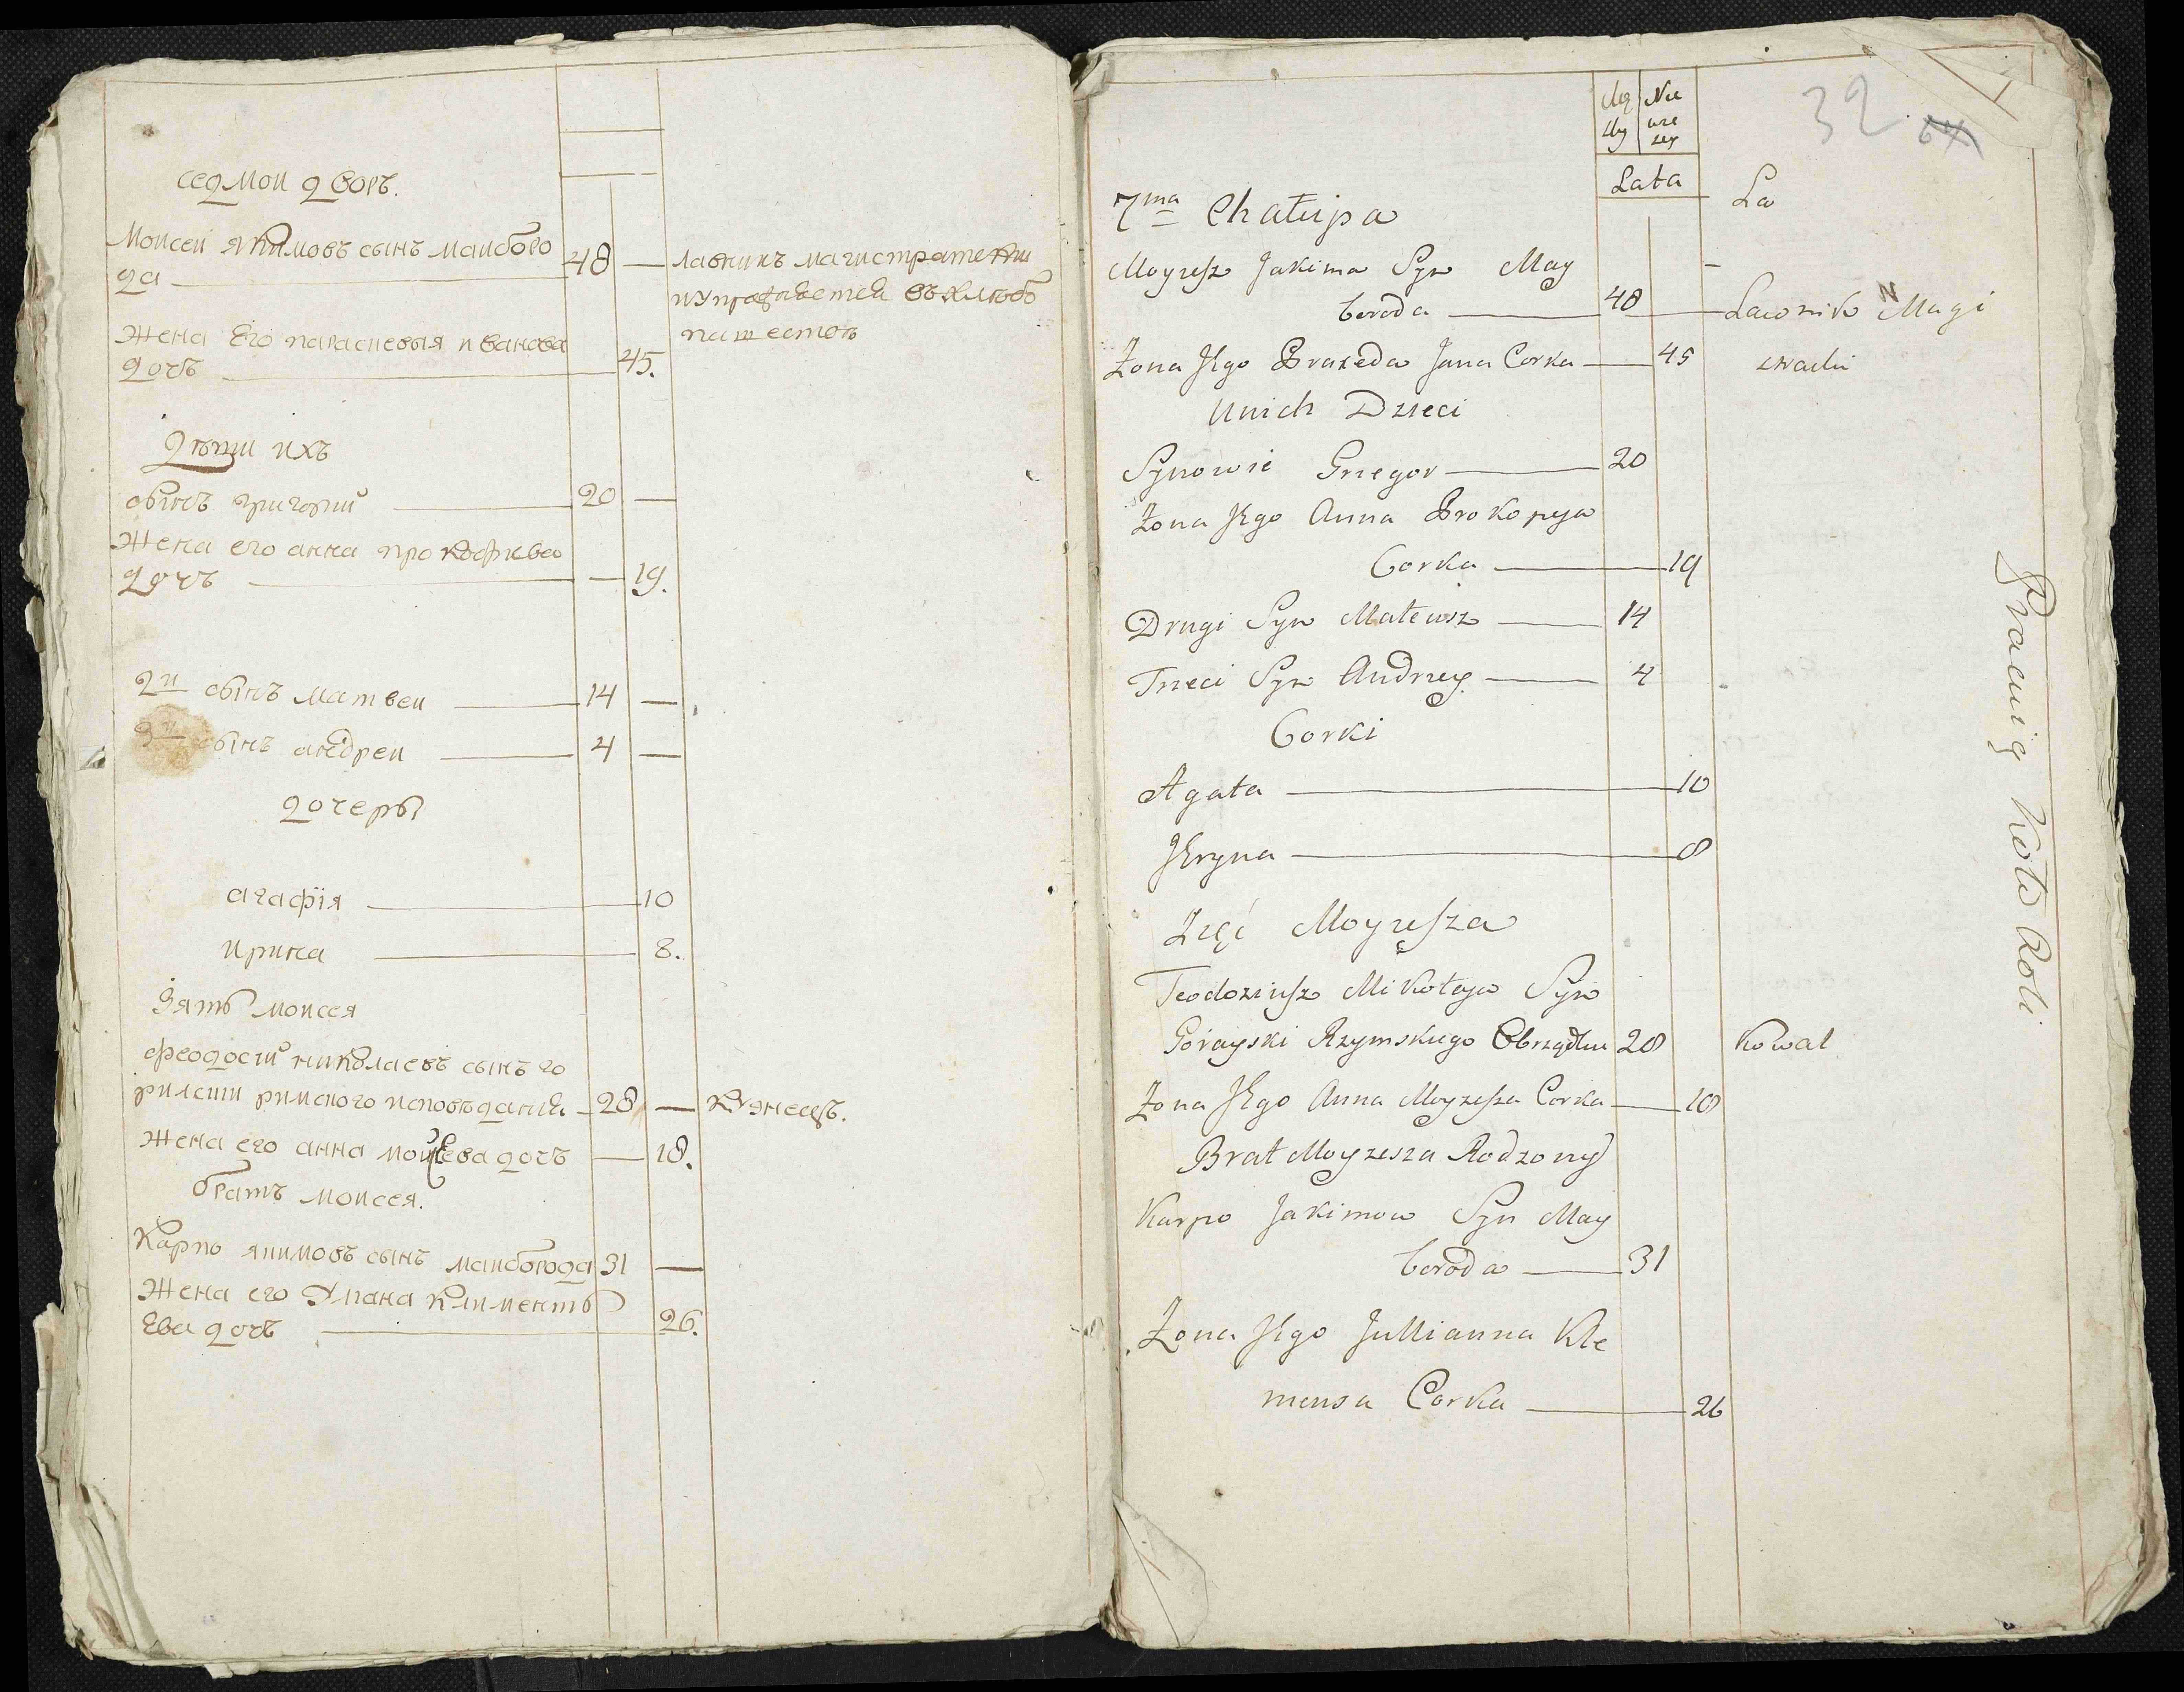 седмои дворъ.
Моисеи якимовъ сынъ маиборо
да 48 — лавникъ магистратскии
и упражняется въ хлебо
пашестве
Жена Его параскевыя иванова
дочь 45.
Дѣти ихъ
сынъ григорий 20 —
Жена его анна прокофиева
дочь — 19.
2й сынъ матвеи 14 —
3й сынъ андреи 4 —
дочеры
агафiя 10
ирина 8.
Зять моисея
феодосий николаевъ сынъ го
рилсши римского исповѣдания 28 — кузнецъ.
Жена его анна моисеева дочь — 18.
братъ моисея.
Карпо якимовъ сынъ маиборода 31 —
Жена его Улиана клименть
Ева дочь 26.
32
Mę Nie
zky wie
zey
Lata
7ma Chałupa La
Moyzesz Jakima Syn May
boroda 48 Lawnik Magi
Żona Jego Praxeda Jana Corka 45 straclu
Unich Dzieci
Synowie Grzegor 20
Żona Jego Anna Prokopya
Corka 19
Drugi Syn Mateusz 14
Trzeci Syn Andrzey 4
Corki
Agata 10
Jryna 8
Zięć Moyzesza
Teodoziusz Mikołaja Syn
Górayski Rzymskiego Obrządku 28 Kowal
Żona Jego Anna Moyzesza Corka 18
Brat Moyzesza Rodzony
Karpo Jakimow Syn May
boroda 31
Żona Jego Jullianna Kle
mensa Corka 26
Pracuią koło Roli